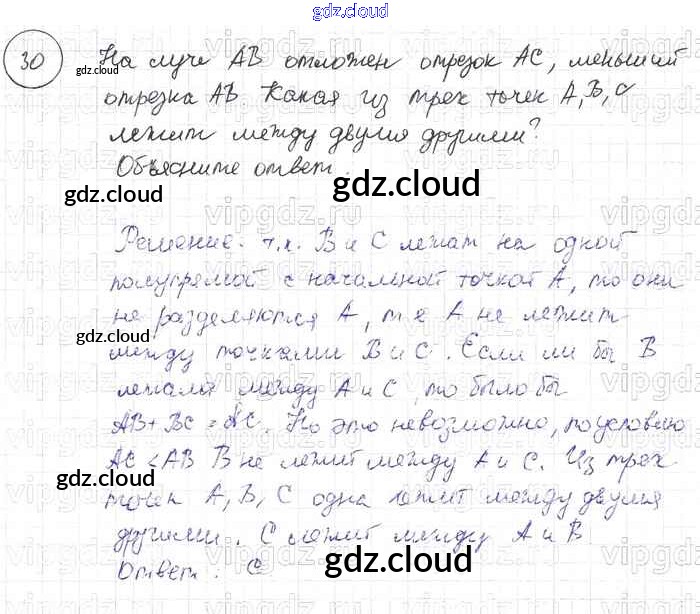 gdz.cloud
30
На луче AB отложен отрезок AC, меньший
gdz.cloud
отрезка AB. Какая из трех точек A, B, C
лежит между двумя другими?
Объясните ответ.
gdz.cloud
gdz.cloud
Решение. т.к. B и C лежат на одной
полупрямой с начальной точкой A, то они
не разделяются A, т.е A не лежит
gdz.cloud
между точками B и C. Если бы B
лежала между A и C, то было бы
AB + BC = AC. Но это невозможно, по условию
AC < AB B не лежит между A и C. Из трех
gdz.cloud
gdz.cloud
точек A, B, C одна лежит между двумя
другими. C лежит между A и B
Ответ: C
gdz.cloud